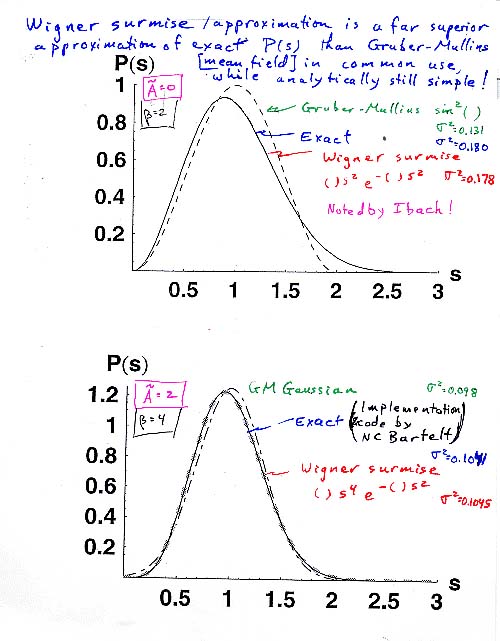 Wigner surmise/approximation is a far superior
approximation of exact P(s) than Gruber-Mullins
[mean field] in common use,
while analytically still simple!
P(s)
Ã=0
β=2
1
0.8
0.6
0.4
0.2
Gruber-Mullins sin²( )
σ²=0.131
Exact
σ²=0.180
Wigner surmise
( )s² e^-( )s² σ²=0.178
Noted by Ibach!
0.5 1 1.5 2 2.5 3
s
P(s)
Ã=2
β=4
1.2
1
0.8
0.6
0.4
0.2
GM Gaussian
σ²=0.098
Exact (Implementation
code by
NC Bartelt)
Wigner surmise
( ) s⁴ e^-( )s²
σ²=0.1045
0.5 1 1.5 2 2.5 3
s